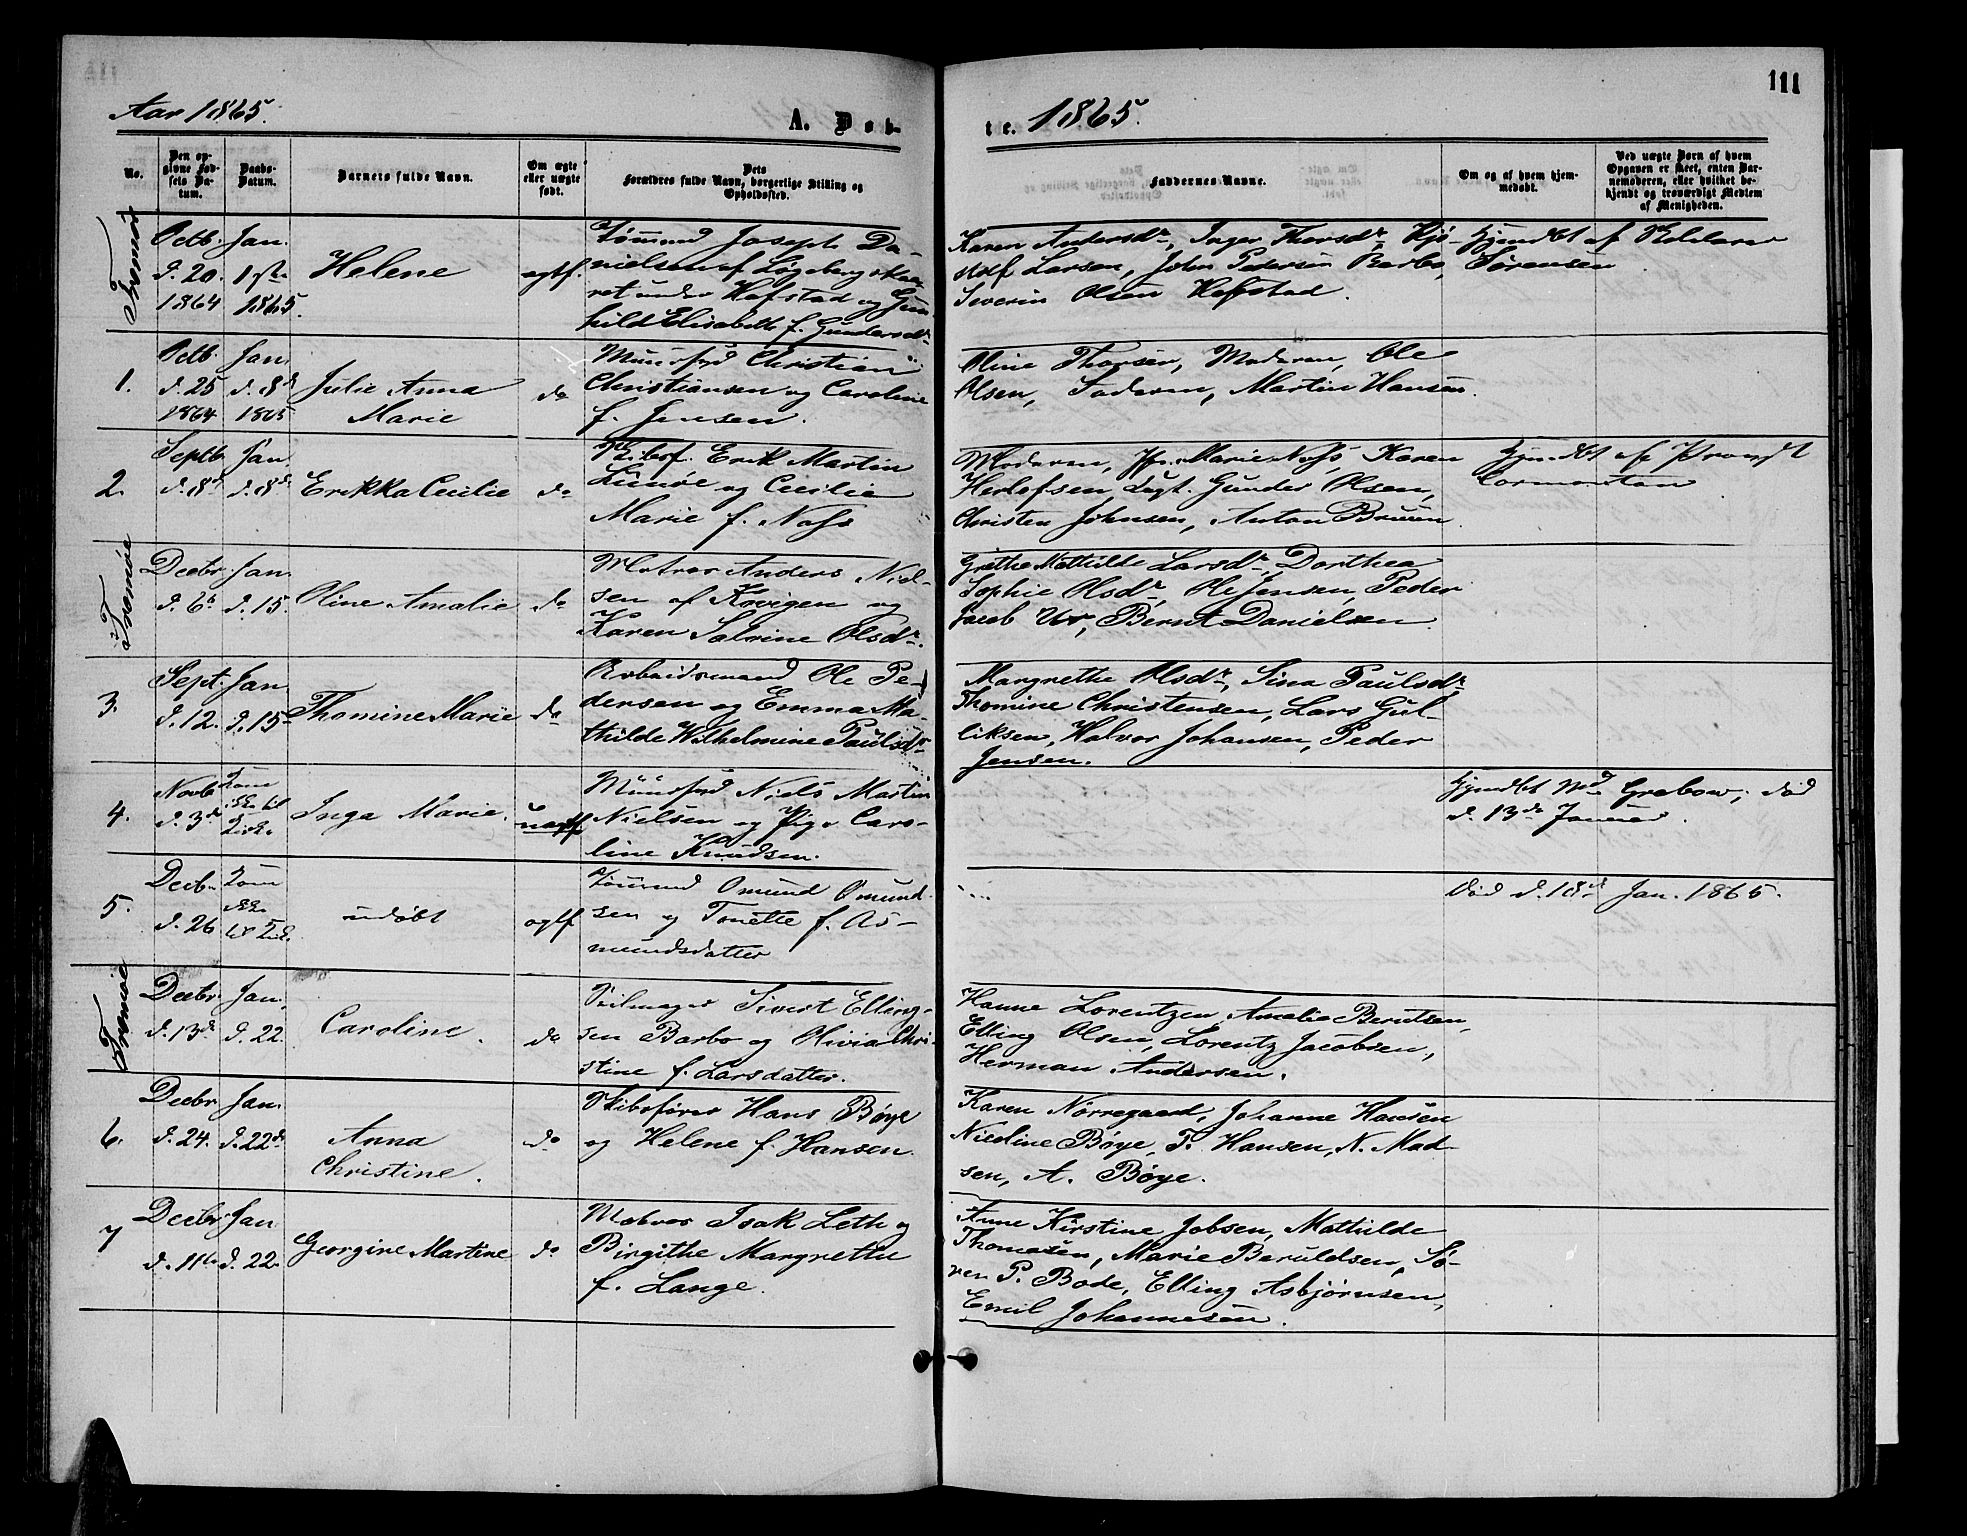 111
Aar 1865.
A. Døb-
te. 1865.
No.
Den op-
givne Fød-
sels Da-
tum.
Daabs-
Datum.
Barnets fulde Navn.
Om ægte
eller uægte
født.
Dets
Forældres fulde Navn, borgerlige Stilling og
Opholdssted.
Faddernes Navne.
Om og af hvem hjem-
medøbt.
Ved uægte Børn af hvem
Opgaven er skeet, enten Bar-
nemoderen, eller hvilket be-
kjendt og troværdigt Medlem
af Menigheden.
Tromøe
Octb.
d. 20.
1864
Jan.
1ste
1865.
Helene
ægtf.
Tømmmd Joseph Da-
nielsen af Løgebergskaa-
ret under Hofstad og Gun-
hild Elisabeth f. Gundersdr.
Karen Andersdr., Inger Thorsdr.,
Larsen, John Pedersen Barbo,
Severin Olsen Hofstad.
Hjmdbt af
Sørensen
1.
Octb.
d. 25
1864
Jan.
d. 8d
1865
Julie Anna
Marie
do
Muursvd Christian
Christiansen og Caroline
f. Jensen.
Oline Thorsen, Moderen, Ole
Olsen, Faderen, Martin Hansen.
2.
Septb.
d. 8d
Jan.
d. 8d
Erikka Cecilie
do
Skibsf. Erik Martin
og Cecilie
Marie f. Næss
Moderen, Jfr. Marie Næss, Karen
Herlofsen, Gunder Olsen,
Christen Johnsen, Anton Bruun.
Hjmdbt af
Tromøe
Decbr
d. 6te
Jan.
d. 15.
Oline Amalie
do
Matros Anders Niel-
sen af Kovigen og
Karen Salvine Olsdr.
Grethe Mathilde Larsdr., Dorthea
Sophie Olsdr., Ole Jensen, Peder
Jacob Ur, Bernt Danielsen
3.
Sept.
d. 12.
Jan
d. 15
Thomine Marie
do
Arbeidsmand Ole Pe-
dersen og Emma Ma-
thilde Wilhelmine Paulsdr.
Margrethe Olsdr., Sina Paulsdr.
Thomine Christensen, Lars Gul-
liksen, Halvor Johansen, Peder
Jensen.
4.
Novb
d. 3de
Kom
ikke til
Kirke
Inga Marie.
uægtf
Muursvd Niels Martin
Nielsen og Pige Caro-
line Knudsen.
Hjmdbt Md Grabow; død
d. 13de Januar.
5.
Decb.
d. 26
Kom
ikke
til Kirke
udøbt
ægtf
Tømmmd Omund Omund-
sen og Tonette f. As-
mundsdatter
Død d. 18d Jan. 1865.
Tromøe
Decbr
d. 13de
Jan.
d. 22.
Caroline.
do
Seilmager Sivert Elling-
sen Barbo og Olivia Chri-
stine f. Larsdatter.
Hanne Lorentzen, Amalie Berntsen,
Elling Olsen, Lorentz Jacobsen,
Herman Andersen.
6.
Decbr
d. 24.
Jan.
d. 22d
Anna
Christine.
do
Skibsfører Hans Bøye
og Helene f. Hansen.
Karen Nørregaard, Johanne Hansen
Nicoline Bøye, T. Hansen, N. Mad-
sen, A. Bøye.
7
Decbr
d. 11te
Jan
d. 22.
Georgine Martine
do
Matros Isak Leth og
Birgithe Margrethe
f. Lange.
Anne Kirstine Jobsen, Mathilde
Thomesen, Marie Beruldsen, Sø-
ren P. Bode, Elling Asbjørnsen,
Emil Johannesen.